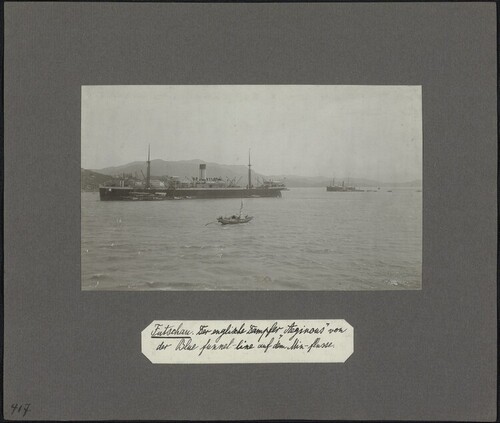 Futschau. Der englische Dampfer „Keginous" von
der Blue funnel line auf dem Min-flusse.
417